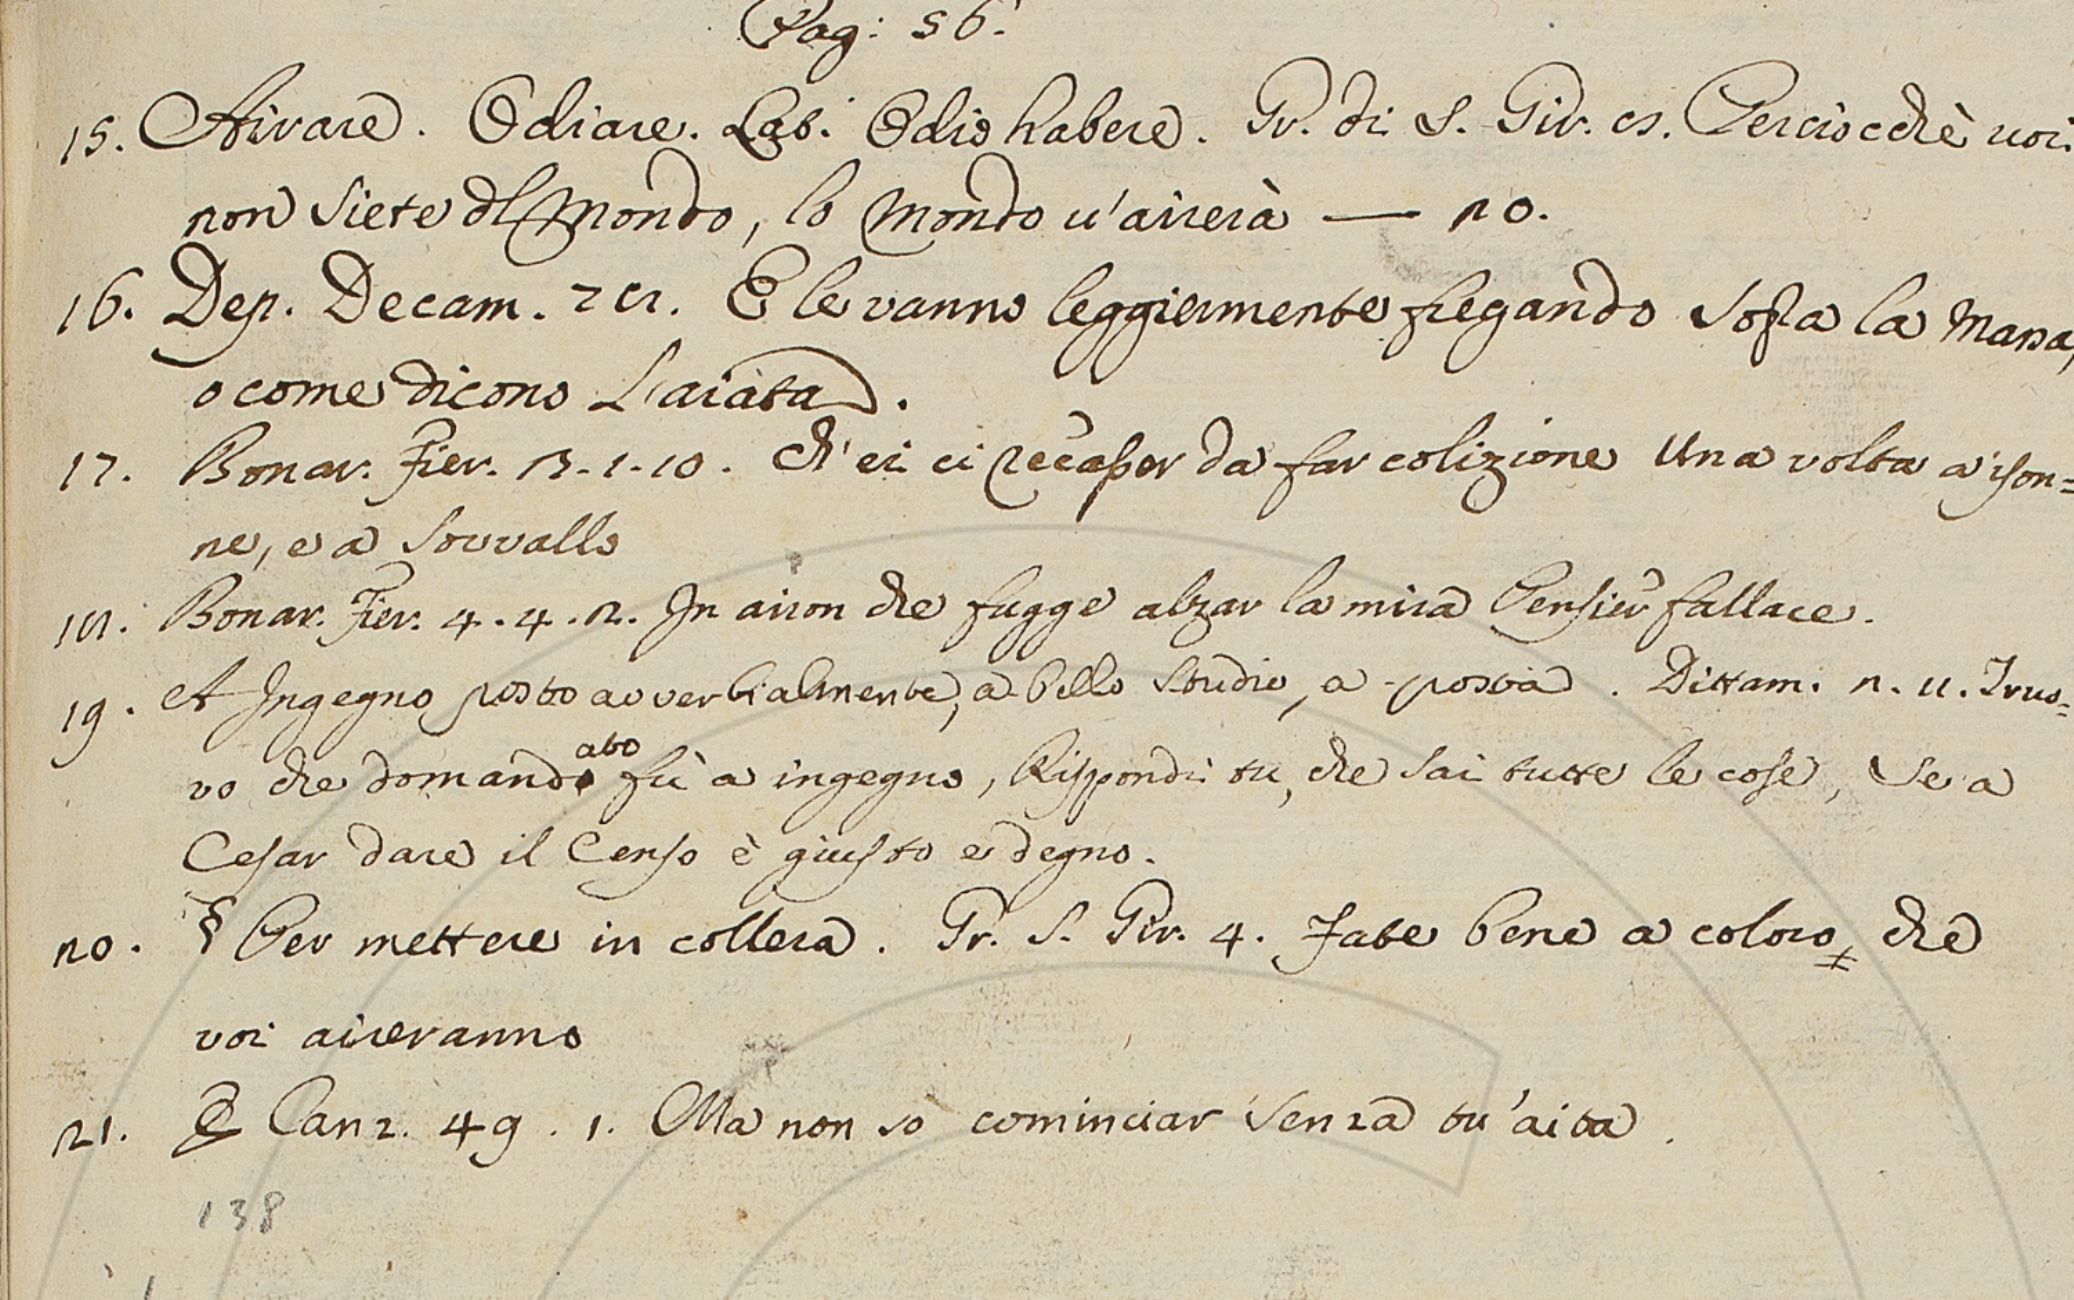 Pag: 56.
15. Airare. Odiare. Lat. Odio habere. Gr. di S. Gir. 8. Perciocchè voi
non siete del Mondo, lo Mondo v'airerà — 20.
16. Dep. Decam. 78. E le vanno leggiermente fregando sopra la massa,
o come dicono L'aiata.
17. Bonar. Fier. 3.1.10. Ch'ei ci recasser da far colizione Una volta a ison=
ne, e a sovvallo
18. Bonar. Fier. 4.4.2. In airon che fugge alzar la mira Pensier fallace.
19. A Ingegno posto avverbialmente, a bello studio, a posta. Dittam. 2. 11. Truo=
vo che domandato fù a ingegno, Rispondi tu, che sai tutte le cose, Se a
Cesar dare il Censo è giusto e degno.
20. § Per mettere in collera. Gr. S. Gir. 4. Fate bene a coloro, che
voi aireranno
21. E Canz. 49. 1. Ma non so cominciar senza tu'aita.
138